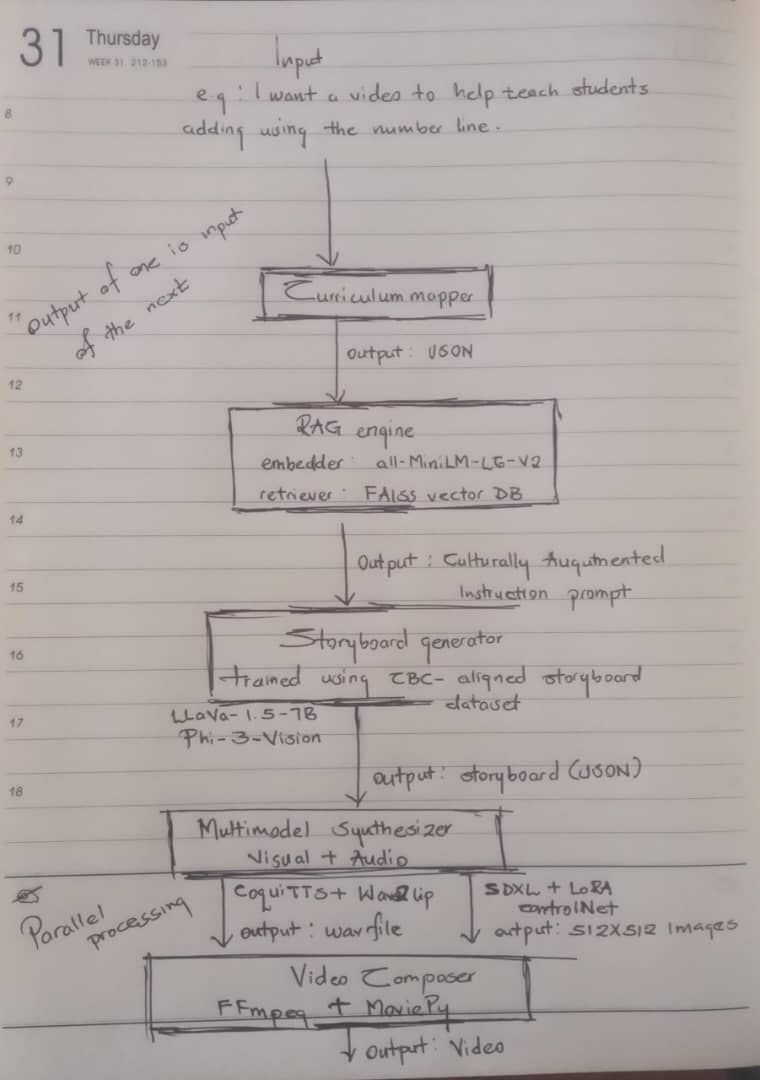 31 Thursday
WEEK 31 212-153
Input
e.g : I want a video to help teach students
adding using the number line.
8
9
10
11
12
13
14
15
16
17
18
Output of one is input
of the next
Curriculum mapper
output : JSON
RAG engine
embedder : all-MiniLM-L6-V2
retriever : FAISS vector DB
Output : Culturally Augumented
Instruction prompt
Storyboard generator
trained using CBC- aligned storyboard
dataset
LLaVa-1.5-7B
Phi-3-Vision
output: storyboard (JSON)
Multimodel Synthesizer
Visual + Audio
Parallel
processing
CoquiTTS + Wav2Lip
output : wav file
SDXL + LoRA
ControlNet
output: 512X512 Images
Video Composer
FFmpeg + MoviePy
output: Video